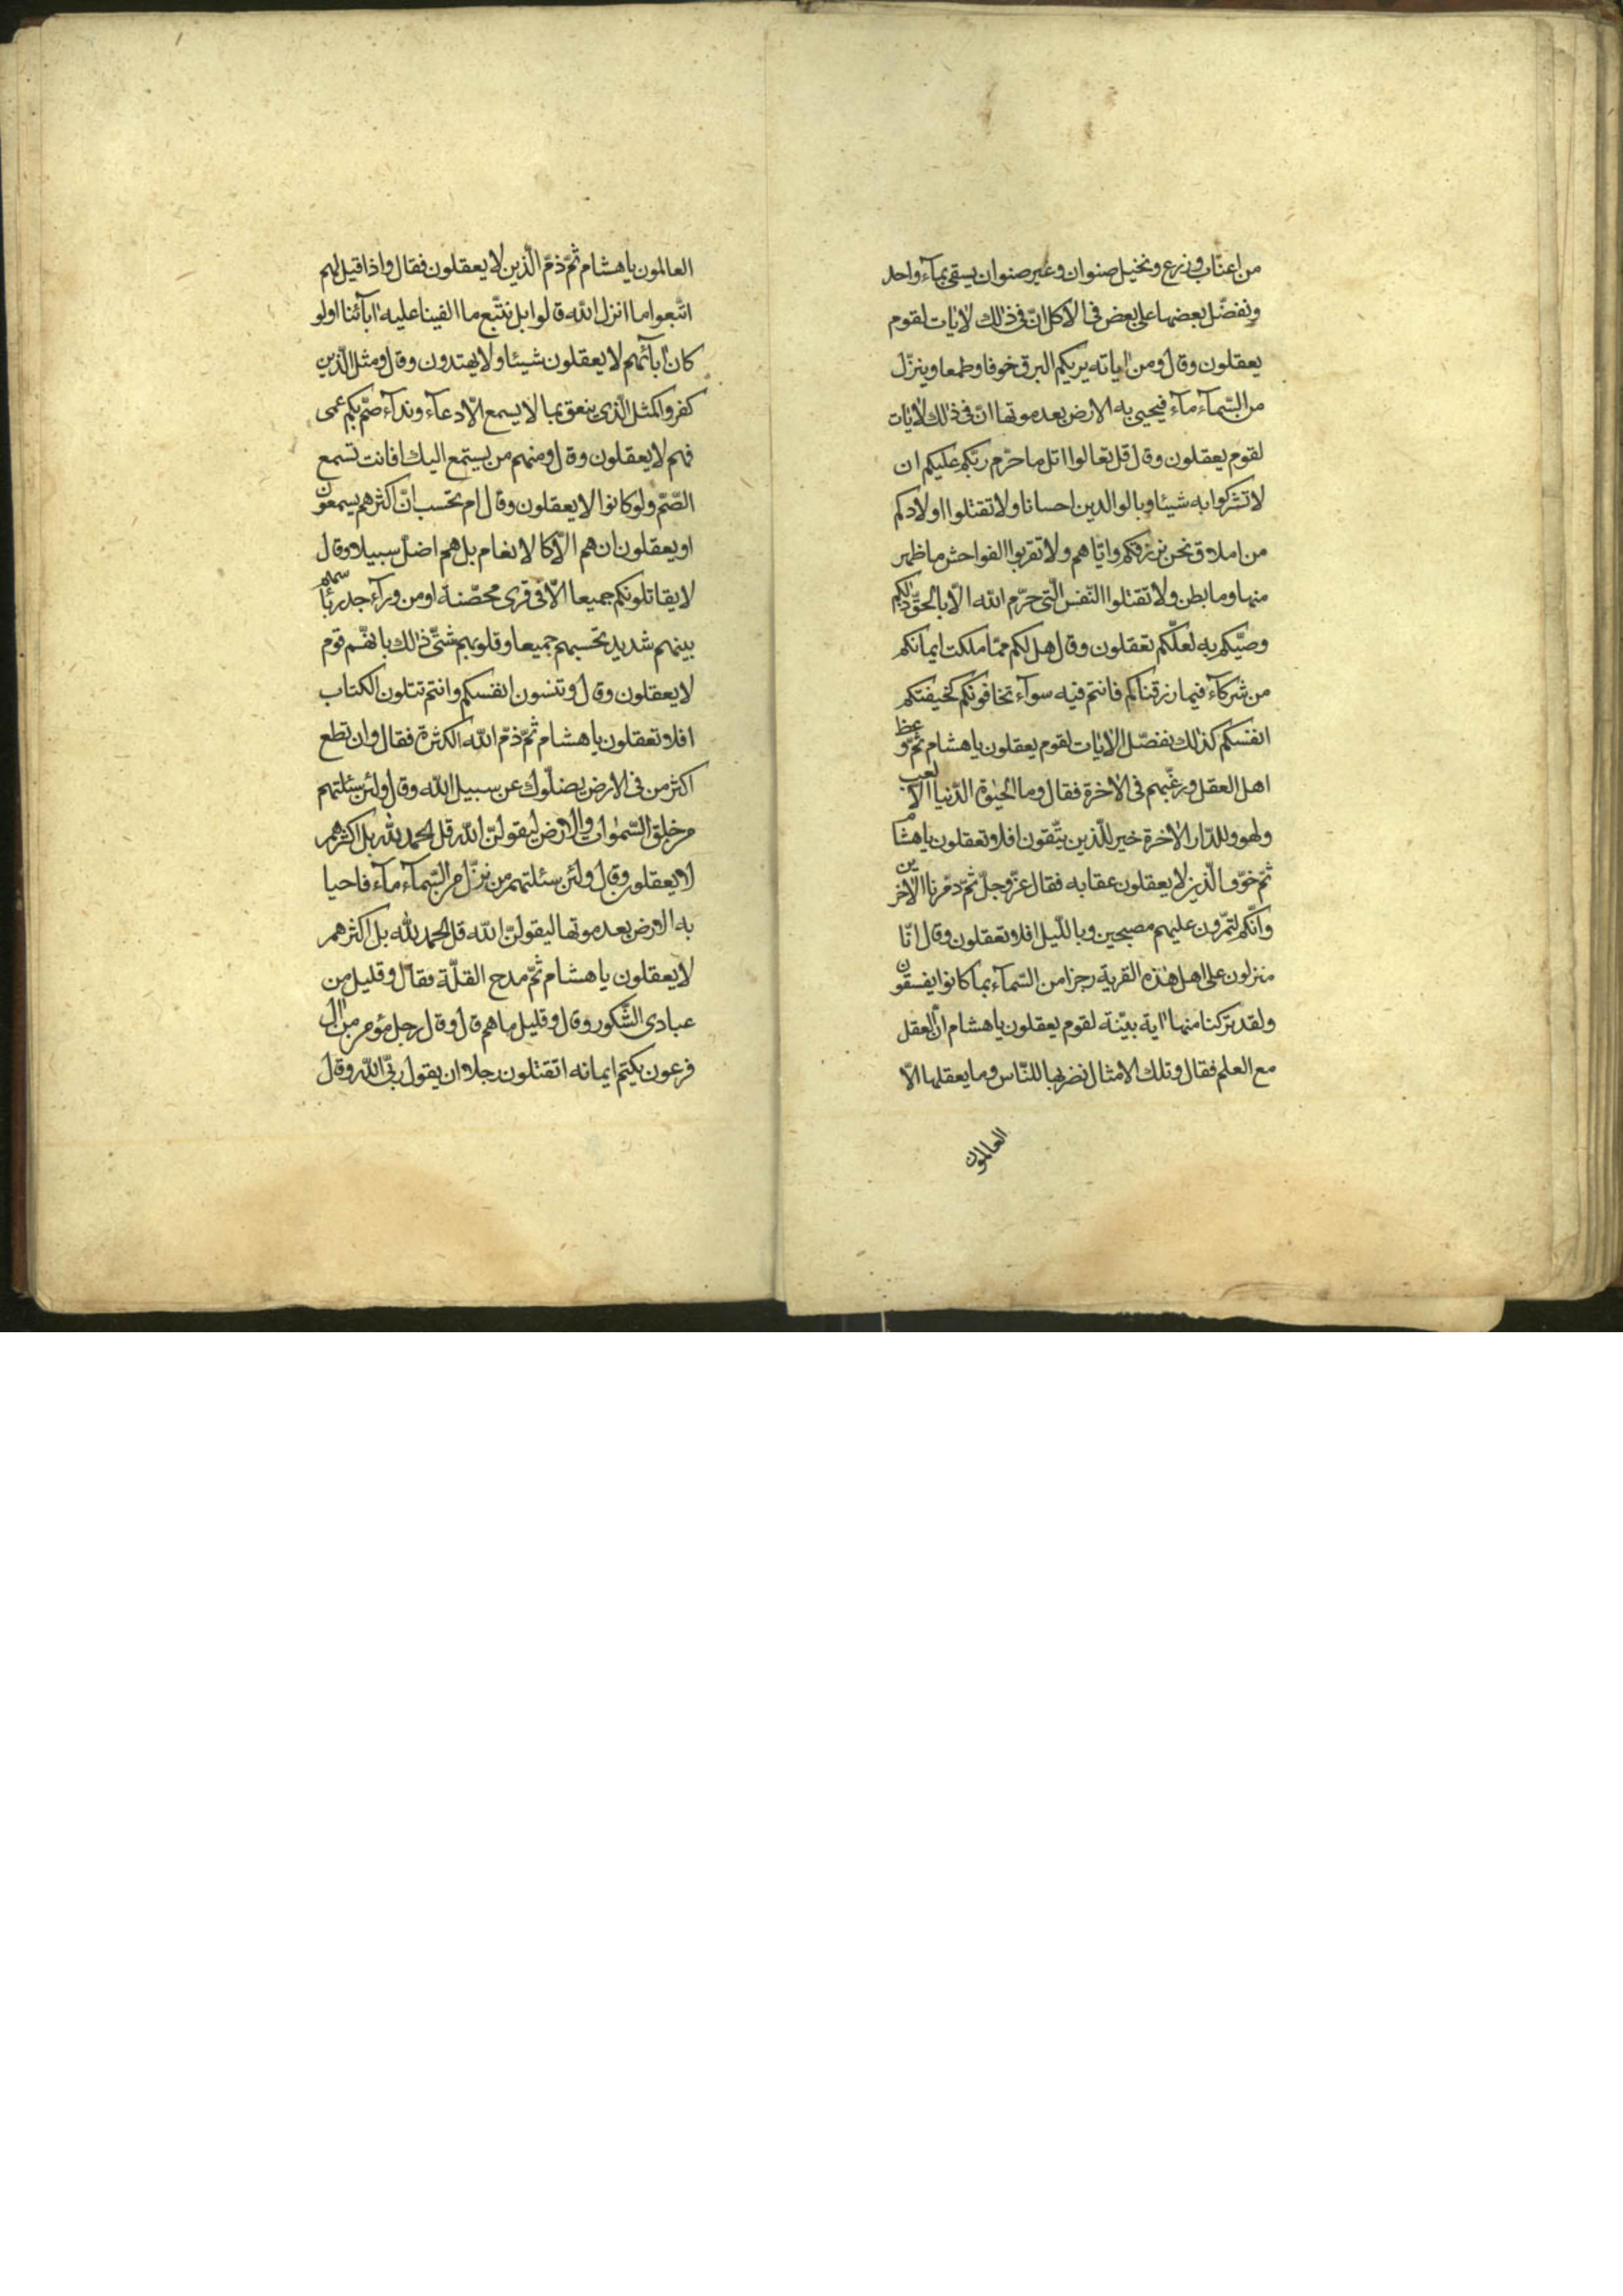 من اعناب وزرع ونخيل صنوان وغير صنوان يسقى بمآء واحد
ونفضّل بعضها على بعض فى الاكل انّ فى ذٰلك لاٰيات لقوم
يعقلون وقال ومن اٰياته يريكم البرق خوفا وطمعا وينزّل
من السّمآء مآء فيحيى به الارض بعد موتها انّ فى ذٰلك لاٰيات
لقوم يعقلون وقال قل تعالوا اتل ما حرّم ربّكم عليكم ان
لا تشركوا به شيئا وبالوالدين احسانا ولا تقتلوا اولادكم
من املاق نحن نرزقكم وايّاهم ولا تقربوا الفواحش ما ظهر
منها وما بطن ولا تقتلوا النّفس الّتى حرّم الله الّا بالحقّ ذٰلكم
وصّيكم به لعلّكم تعقلون وقال هل لكم ممّا ملكت ايمانكم
من شركآء فيما رزقناكم فانتم فيه سوآء تخافونهم كخيفتكم
انفسكم كذٰلك نفصّل الاٰيات لقوم يعقلون يا هشام ثمّ وعظ
اهل العقل ورغّبهم فى الاٰخرة فقال وما الحيوٰة الدّنيا الّا لعب
ولهو وللدّار الاٰخرة خير للّذين يتّقون افلا تعقلون يا هشام
ثمّ خوّف الّذين لا يعقلون عقابه فقال عزّ وجلّ ثمّ دمّرنا الاٰخرين
وانّكم لتمرّون عليهم مصبحين وباللّيل افلا تعقلون وقال انّا
منزلون على اهل هٰذه القرية رجزا من السّمآء بما كانوا يفسقون
ولقد تركنا منها اٰية بيّنة لقوم يعقلون يا هشام انّ العقل
مع العلم فقال وتلك الامثال نضربها للنّاس وما يعقلها الّا
العالمون
العالمون يا هشام ثمّ ذمّ الّذين لا يعقلون فقال واذا قيل لهم
اتّبعوا ما انزل الله قالوا بل نتّبع ما الفينا عليه اٰبآئنا اولو
كان اٰبآئهم لا يعقلون شيئا ولا يهتدون وقال ومثل الّذين
كفروا كمثل الّذى ينعق بما لا يسمع الّا دعآء وندآء صمّ بكم عمى
فهم لا يعقلون وقال ومنهم من يستمع اليك افانت تسمع
الصّمّ ولو كانوا لا يعقلون وقال ام تحسب انّ اكثرهم يسمعون
او يعقلون ان هم الّا كالانعام بل هم اضلّ سبيلا وقال
لا يقاتلونكم جميعا الّا فى قرى محصّنة او من ورآء جدر باسهم
بينهم شديد تحسبهم جميعا وقلوبهم شتّى ذٰلك بانّهم قوم
لا يعقلون وقال وتنسون انفسكم وانتم تتلون الكتاب
افلا تعقلون يا هشام ثمّ ذمّ الله الكثرة فقال وان تطع
اكثر من فى الارض يضلّوك عن سبيل الله وقال ولئن سئلتهم
من خلق السّمٰوات والارض ليقولنّ الله قل الحمد لله بل اكثرهم
لا يعقلون وقال ولئن سئلتهم من نزّل من السّمآء مآء فاحيا
به الارض بعد موتها ليقولنّ الله قل الحمد لله بل اكثرهم
لا يعقلون يا هشام ثمّ مدح القلّة فقال وقليل من
عبادى الشّكور وقال وقليل ما هم قال وقال رجل مؤمن من اٰل
فرعون يكتم ايمانه اتقتلون رجلا ان يقول ربّى الله وقال